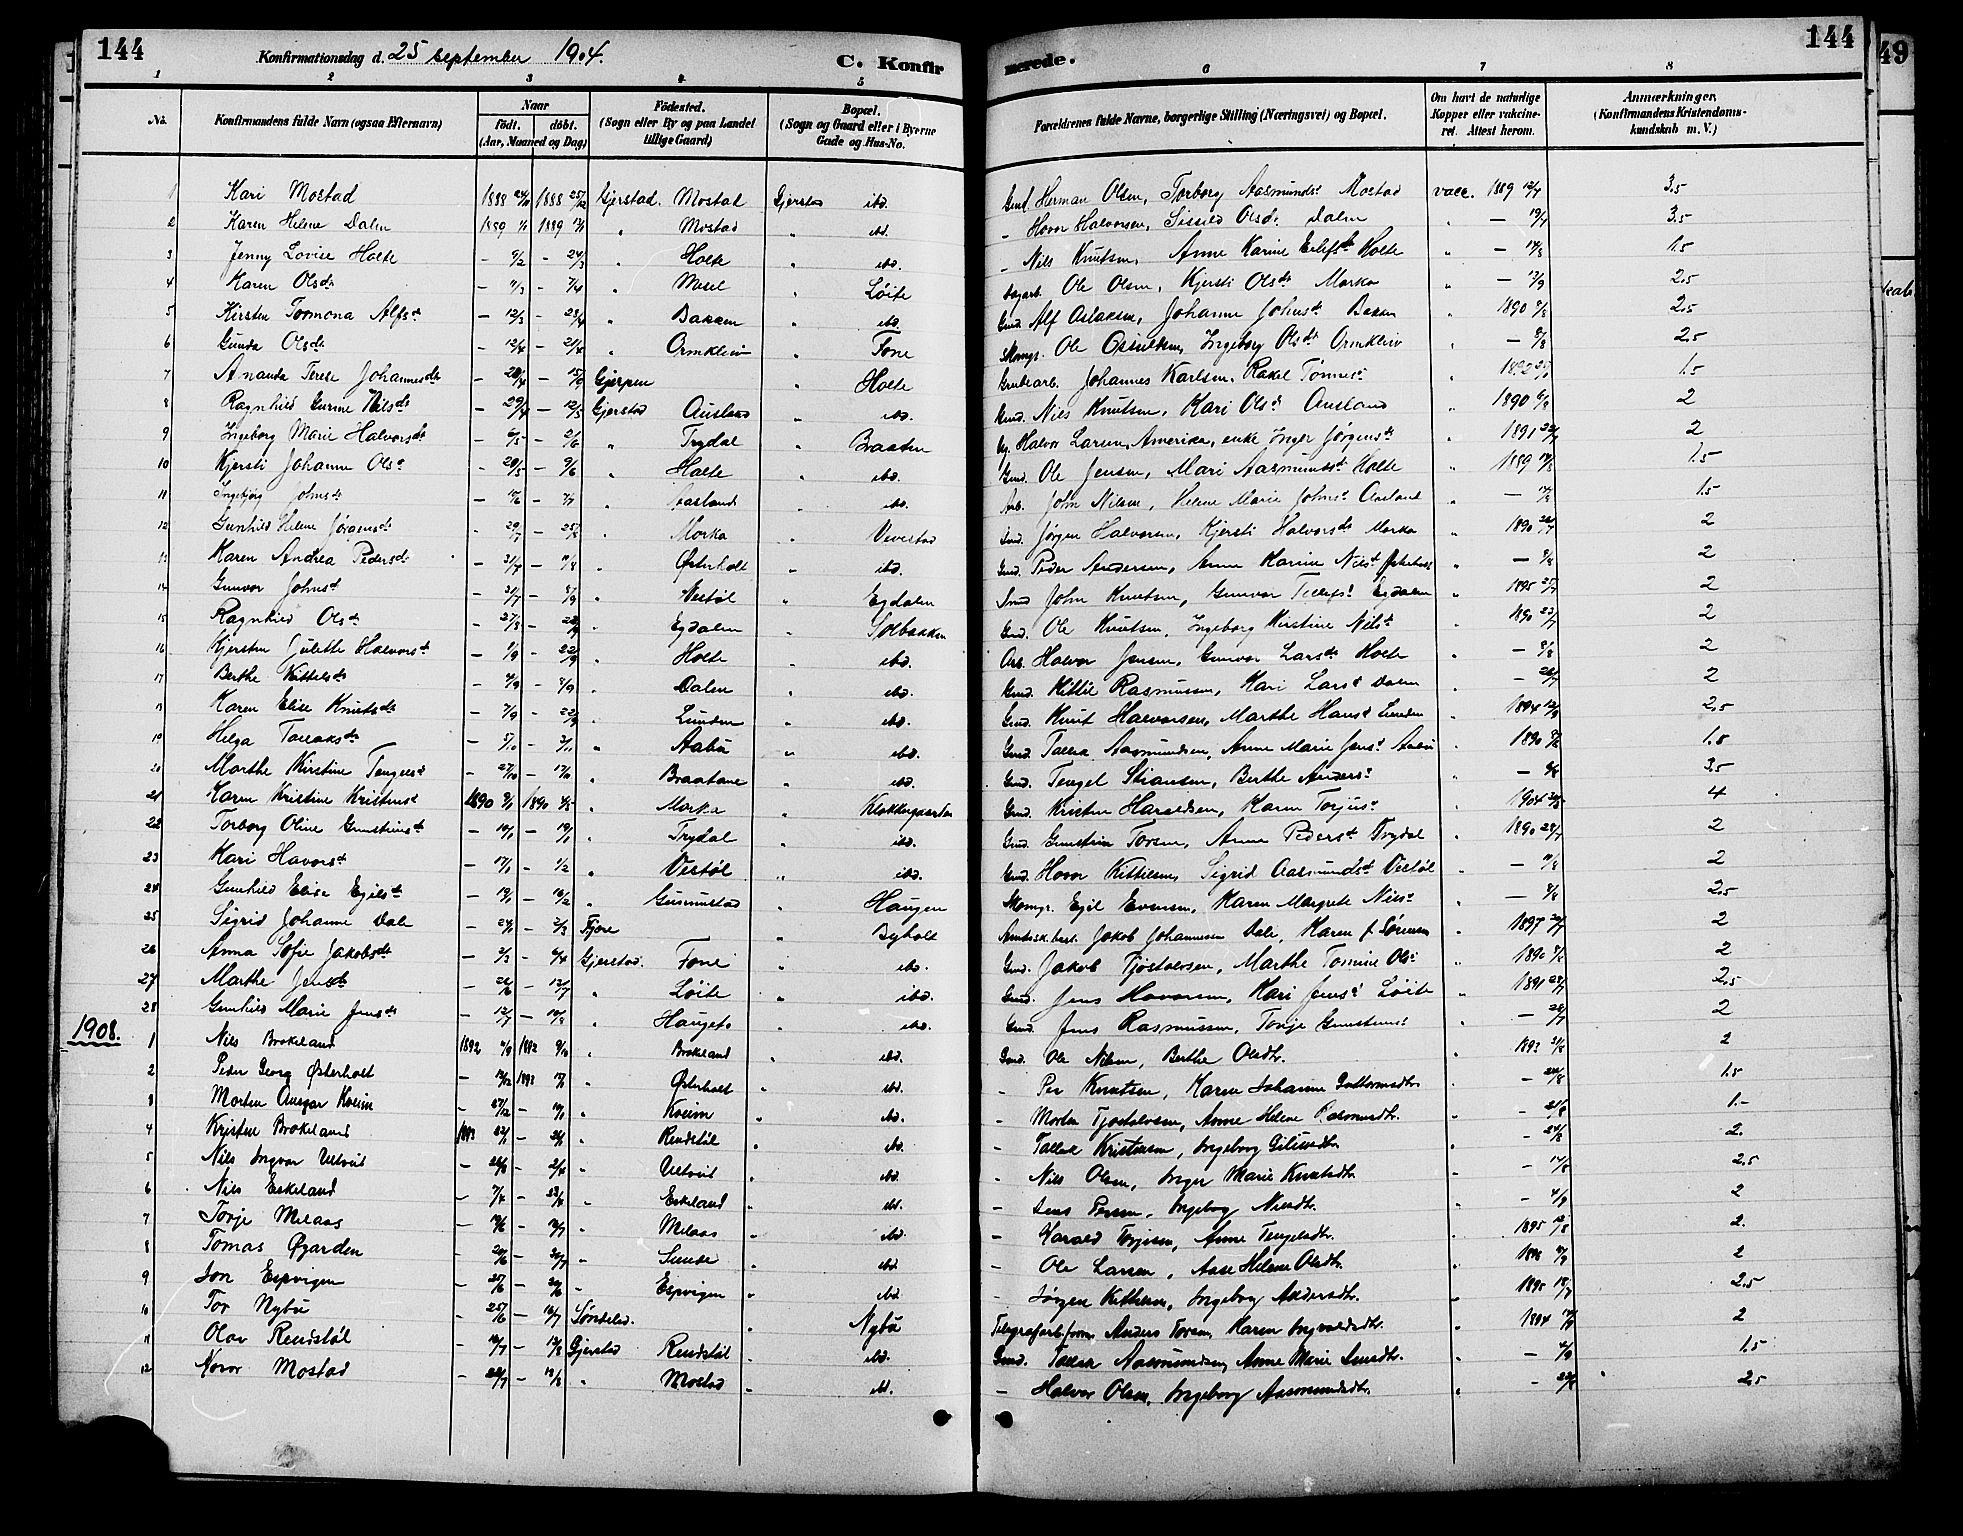 144
Konfirmationsdag d. 25 september 1904.
C. Konfirmerede.
144
49
1 2 3 4 5 6 7 8
No.
Konfirmandens fulde Navn (ogsaa Efternavn)
Naar
födt. döbt.
(Aar, Maaned og Dag)
Födested.
(Sogn eller By og paa Landet tillige Gaard)
Bopæl.
(Sogn og Gaard eller i Byerne Gade og Hus-No.
Forældrenes fulde Navne, borgerlige Stilling (Næringsvei) og Bopæl.
Om havt de naturlige Kopper eller vakcineret. Attest herom.
Anmærkninger,
(Konfirmandens Kristendomskundskab m. V.)
1 Kari Mostad 1888 1888 Gjerstad. Mostad Gjerstad ibd. Gmd. Herman Olsen, Torborg Aasmundsd. Mostad vacc. 1889 3.5
2 Karen Helene Dalen 1889 1889 " Mostad " ibd. – Hovor Halvorsen, Sissel Olsdr. Dalen " – 19/7 3.5
3 Jenny Lovise Holte – 9/2 – 24/3 " Holte " ibd. – Nils Knutsen, Anne Karine Eilefsdr Holte " – 1.5
4 Karen Olsdr – – 7/4 " Mesel " Löite Ole Olsen, Kjersti Olsdr Morka " – 13/9 2.5
5 Kirsten Tormona Alfsd. – 12/3 – 23/4 " Bakken " ibd. Gmd. Alf Aslaksen, Johanne Johnsd. Bakken " 1890 2.5
6 Gunda Olsdr – 12/4 – 21/4 " Ormkleiv " Fone Skomgr. Ole Ossuldsen, Ingeborg Olsdr Ormkleiv " – 2.5
7 Ananda Terese Johannesdr – – 15/9 Gjerpen " Holte Grubearb. Johannes Karlsen, Rakel Tönnesd. " 1892 1.5
8 Ragnhild Gurine Nilsdr – 29/4 – 12/5 Gjerstad Ausland " ibd. Gmd. Nils Knutsen, Kari Olsd. Ausland " 1890 2
9 Ingeborg Marie Halvorsdr – 6/5 – 2/6 " Trydal " Braaten Halvor Larsen, Amerika, enke Inger Jörgensdr " 1891 2
10 Kjersti Johanne Olsd. – 20/5 – 9/6 " Holte " ibd. Gmd. Ole Jensen, Mari Aasmundsd. Holte " 1889 1.5
11 Ingebjörg Johnsdr – – 7/7 " Aasland " ibd. Arb. John Nilsen, Helene Marie Johnsd. Aasland " – 1.5
12 Gunhild Helene Jörgensdr – 29/7 – 25/8 " Morka " Vevestad Gmd. Jörgen Halvorsen, Kjersti Halvorsdr Morka " 1890 2
13 Karen Andrea Pedersdr – 31/7 – 11/8 " Østerholt " ibd. Gmd. Peder Andersen, Anne Karine Nilsd. Østerholt – 2
14 Gunvor Johnsd. – 31/7 – 8/9 " Vestöl " Egdalen Gmd John Knutsen, Gunvor Tellefsd. Egdalen " 1895 2
15 Ragnhild Olsd. – 27/8 – " Egdalen " Solbakken Gmd. Ole Knutsen, Ingeborg Kirstine Nilsd. " 1890 23/7 2
16 Kjersten Julette Halvorsd. – 1/9 – 22/9 " Holte " ibd. Arb. Halvor Jensen, Gunvor Larsdr Holte " – 2
17 Berthe Kittelsdr – – 8/9 " Dalen " ibd. Gmd. Kittil Rasmussen, Kari Larsd. Dalen " – 2
18 Karen Elise Knutsdr – 7/9 – 22/9 " Lunden " ibd. Gmd. Knut Halvorsen, Marthe Hansd. Lunden " 1894 2.5
19 Helga Tallaksdr – 5/10 – 3/11 " Aabö " ibd. Gmd. Tallak Aasmundsen, Anne Marie Jensd. Aabö " 1890 1.5
20 Marthe Kirstine Tengelsd. – 27/10 – " Braatane " ibd. Gmd. Tengel Stiansen, Berthe Andersd. " – 3.5
21 Karen Kristine Kristensd. 1890 1890 " Morka " Klokkergaarden Gmd. Kristen Haraldsen, Karen Torjusd. " 1904 4
22 Torborg Oline Gunstensd. – – " Trydal " ibd. Gmd. Gunstein Torsen, Anne Pedersd. Trydal " 1890 2
23 Kari Havorsd. – 17/1 – 1/2 " Vestöl " ibd. Gmd. Hovor Kittilsen, Sigrid Aasmundsd. Vestöl " – 2
24 Gunhild Elise Egilsd. – 19/1 – 16/2 " Gusrumstad " Haugen Skomgr. Egil Evensen, Karen Margrete Nilsd. " – 2.5
25 Sigrid Johanne Dale – – 2/3 Fjære " Byholt Jakob Johannesen Dale, Karen f. Sörensen " 1897 2
26 Anna Sofie Jakobsdr – 2/3 – 6/4 Gjerstad. Fone " ibd. Gmd. Jakob Tjöstolvsen, Marthe Tomine Olsd. " 1890 2
27 Marthe Jensdr – – 13/7 " Löite " ibd. Gmd. Jens Hovorsen, Kari Jensd. Löite " 1891 2.5
28 Gunhild Marie Jensdr – 12/7 – 10/8 " Haugeto " ibd. Gmd. Jens Rasmussen, Torje Gunstensd. " – 2
1908.
1 Nils Brokeland 1892 1892 " Brokeland " ibd. Gmd. Ole Nilsen, Berthe Olsdtr. " 1893 2
2 Peder Georg Østerholt – 1893 " Østerholt " ibd. – Per Knutsen, Karen Johanne Guttormsdtr. " – 1.5
3 Morten Ansgar Kveim – 27/12 – " Kveim " ibd. – Morten Tjostolvsen, Anne Helene Rasmusdtr. " – 1.–
4 Kristen Brokeland 1893 – " Rendstöl " ibd. – Tallak Kristensen, Ingeborg Gilusdtr. – 2.
5 Nils Ingvar Ultveit – – 2/4 " Ultveit " ibd. – Nils Olsen, Inger Marie Knutsdtr. " – 14/8 2.5
6 Nils Eskeland – – " Eskeland " ibd. – Jens Persen, Ingeborg Nilsdtr. – 2
7 Torje Milaas – – " Milaas " ibd. – Harald Torjesen, Anne Tengelsdtr. " 1895 2.
8 Tomas Øgarden – – " Sunde " ibd. – Ole Larsen, Aase Helene Olsdtr. " 2
9 Jon Espvigen – – " Espvigen " ibd – Jörgen Kittilsen, Ingeborg Andersdtr. " 1895 2.5
10 Tor Nybö – 25/6 – 16/7 Söndeled. " Nybö Telegrafarb.form. Anders Torsen, Karen Ingvaldsdtr. " 1894 2
11 Olav Rendstöl – – Gjerstad Rendstöl " ibd. Gmd. Tallak Aasmundsen, Anne Marie Jensdtr. " – 1.5
12 Hovor Mostad – – " Mostad " ibd. – Halvor Olsen, Ingeborg Aasmundsdtr. " – 2.5